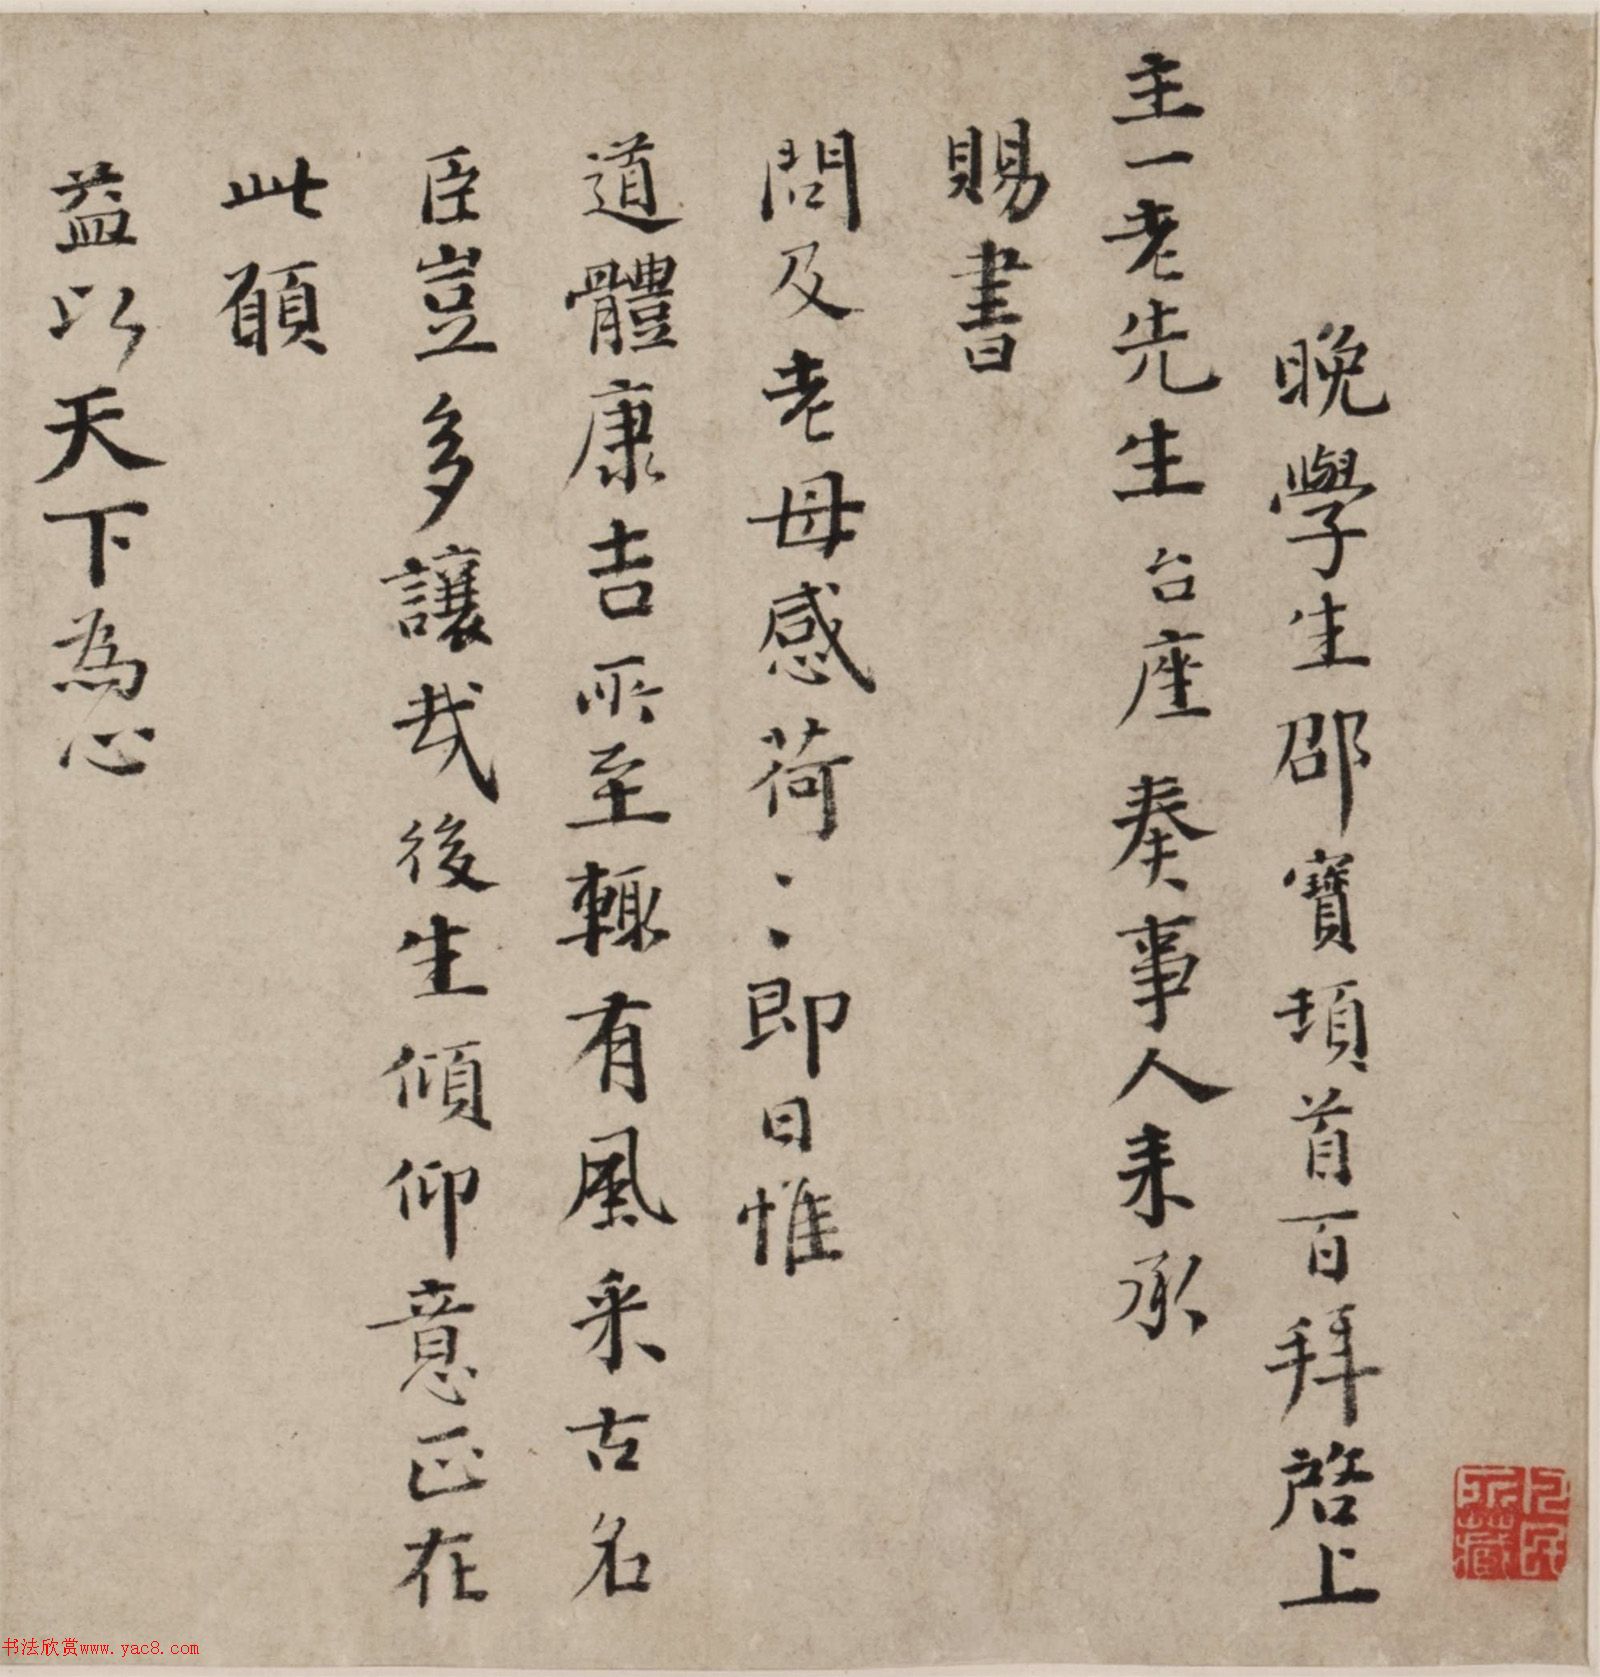 晚學生邵寶頓首百拜啓上
主一老先生台座奏事人来承
賜書
問及老母感荷〻即日惟
道體康吉所至輙有風采古名
臣豈多讓哉後生傾仰意正在
此願
益以天下為心
書法欣赏www.yac8.com